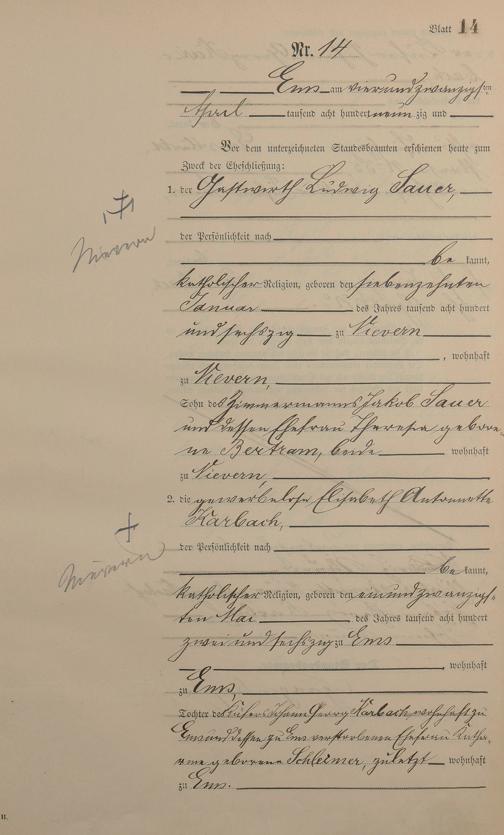 Blatt 14
Nr. 14
Ems am vierundzwanzigsten
April tausend acht hundert neun zig und
Vor dem unterzeichneten Standesbeamten erschienen heute zum
Zweck der Eheschließung:
1. der Gastwirth Ludwig Sauer,
der Persönlichkeit nach
be kannt,
katholischer Religion, geboren den siebenzehnten
Januar des Jahres tausend acht hundert
und sechszig zu Nievern
, wohnhaft
zu Nievern,
Sohn des Zimmermanns Jakob Sauer
und dessen Ehefrau Theresia gebore-
ne Bertram, beide wohnhaft
zu Nievern,
2. die gewerbelose Elisabeth Antonnette
Karbach,
der Persönlichkeit nach
be kannt,
katholischer Religion, geboren den einundzwanzigs-
ten Mai des Jahres tausend acht hundert
zwei und sechszig zu Ems
, wohnhaft
zu Ems,
Tochter des Küfers Johann Georg Karbach wohnhaft zu
Ems und dessen zu Ems verstorbenen Ehefrau Katha-
rine geborene Schleimer, zuletzt wohnhaft
zu Ems.
Nievern
Nievern
II.